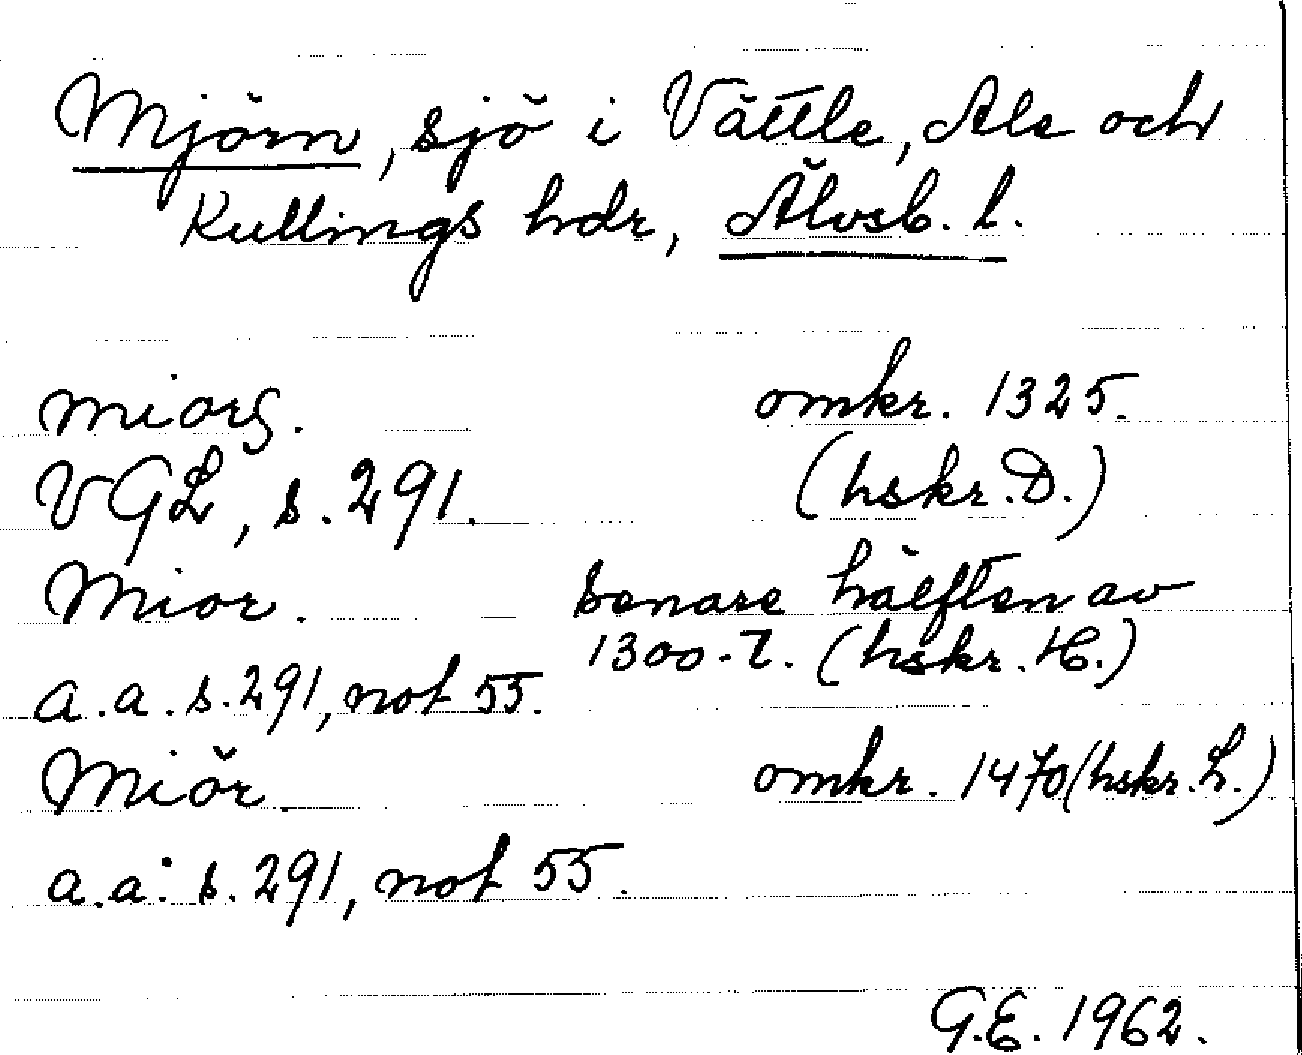 Mjörn, sjö i Vättle, Ale och
Kullings hdr, Älvsb. l.
miorg. omkr. 1325.
VGL, s. 291. (hskr. D.)
Mior. Senare hälften av
1300-t. (hskr. H.)
a.a. s. 291, not 55.
Miör omkr. 1470 (hskr. L.)
a.a. s. 291, not 55.
G.E. 1962.